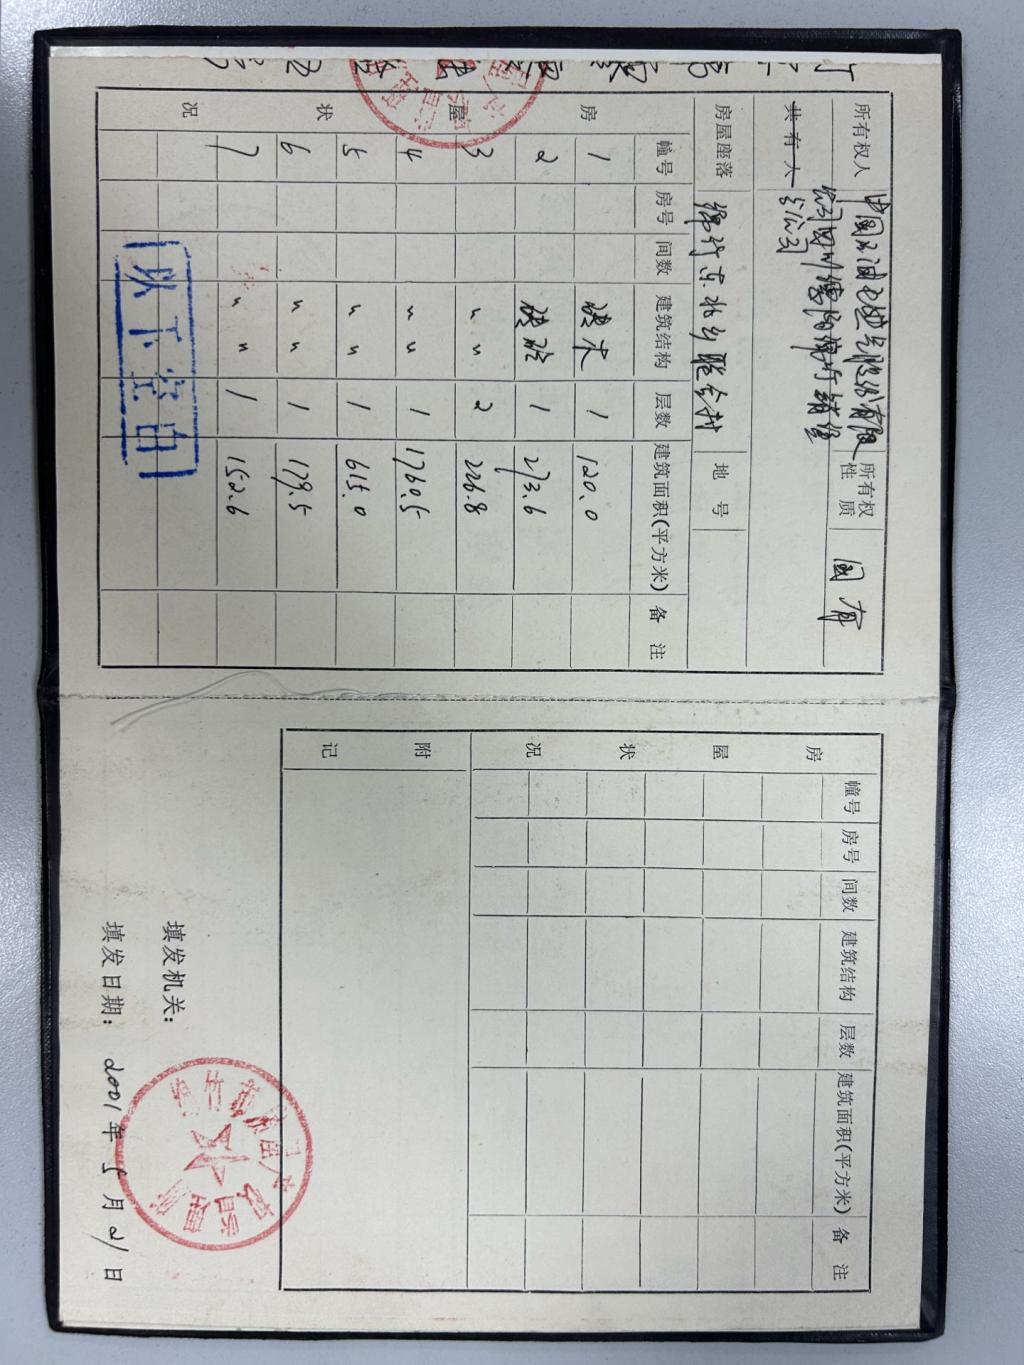 所有权人 中国石油天然气股份有限
公司四川德阳绵竹销售
分公司
所有权性质 国有
共有人
房屋座落 绵竹东北乡联合村 地号
房屋状况
幢号 房号 间数 建筑结构 层数 建筑面积(平方米) 备注
1 砖木 1 120.0
2 砖砼 1 273.6
3 〃 〃 2 226.8
4 〃 〃 1 1760.5
5 〃 〃 1 615.0
6 〃 〃 1 179.5
7 〃 〃 1 152.6
以下空白
房屋状况
幢号 房号 间数 建筑结构 层数 建筑面积(平方米) 备注
附记
填发机关:
填发日期: 2001年5月21日